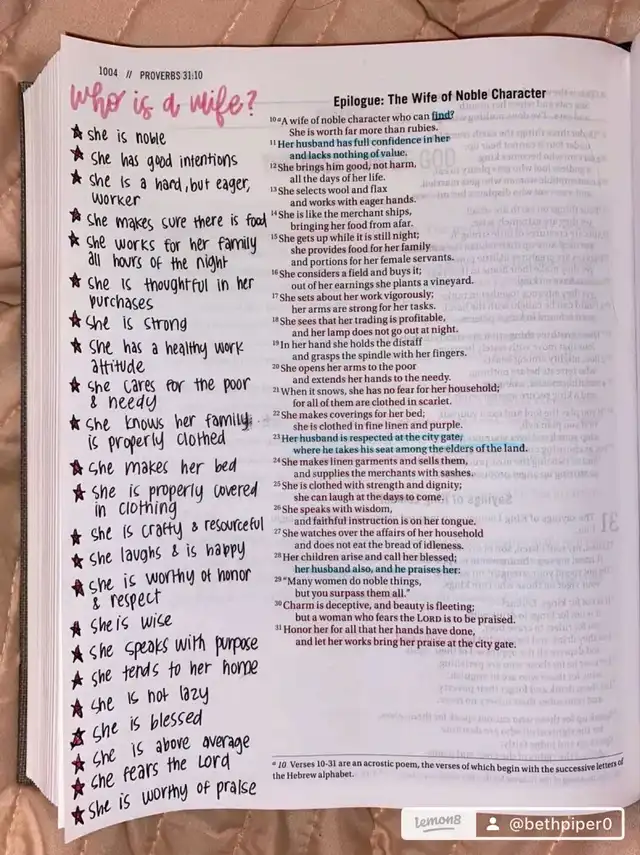 1004 // PROVERBS 31:10
who is a wife?
★ she is noble
★ she has good intentions
★ she is a hard, but eager,
worker
★ she makes sure there is food
★ she works for her family
all hours of the night
★ she is thoughtful in her
purchases
★ she is strong
★ she has a healthy work
attitude
★ she cares for the poor
& needy
★ she knows her family
is properly clothed
★ she makes her bed
★ she is properly covered
in clothing
★ she is crafty & resourceful
★ she laughs & is happy
★ she is worthy of honor
& respect
★ she is wise
★ she speaks with purpose
★ she tends to her home
★ she is not lazy
★ she is blessed
★ she is above average
★ she fears the Lord
★ she is worthy of praise
Epilogue: The Wife of Noble Character
10 a A wife of noble character who can find?
She is worth far more than rubies.
11 Her husband has full confidence in her
and lacks nothing of value.
12 She brings him good, not harm,
all the days of her life.
13 She selects wool and flax
and works with eager hands.
14 She is like the merchant ships,
bringing her food from afar.
15 She gets up while it is still night;
she provides food for her family
and portions for her female servants.
16 She considers a field and buys it;
out of her earnings she plants a vineyard.
17 She sets about her work vigorously;
her arms are strong for her tasks.
18 She sees that her trading is profitable,
and her lamp does not go out at night.
19 In her hand she holds the distaff
and grasps the spindle with her fingers.
20 She opens her arms to the poor
and extends her hands to the needy.
21 When it snows, she has no fear for her household;
for all of them are clothed in scarlet.
22 She makes coverings for her bed;
she is clothed in fine linen and purple.
23 Her husband is respected at the city gate,
where he takes his seat among the elders of the land.
24 She makes linen garments and sells them,
and supplies the merchants with sashes.
25 She is clothed with strength and dignity;
she can laugh at the days to come.
26 She speaks with wisdom,
and faithful instruction is on her tongue.
27 She watches over the affairs of her household
and does not eat the bread of idleness.
28 Her children arise and call her blessed;
her husband also, and he praises her:
29 "Many women do noble things,
but you surpass them all."
30 Charm is deceptive, and beauty is fleeting;
but a woman who fears the LORD is to be praised.
31 Honor her for all that her hands have done,
and let her works bring her praise at the city gate.
a 10 Verses 10-31 are an acrostic poem, the verses of which begin with the successive letters of
the Hebrew alphabet.
lemon8 @bethpiper0